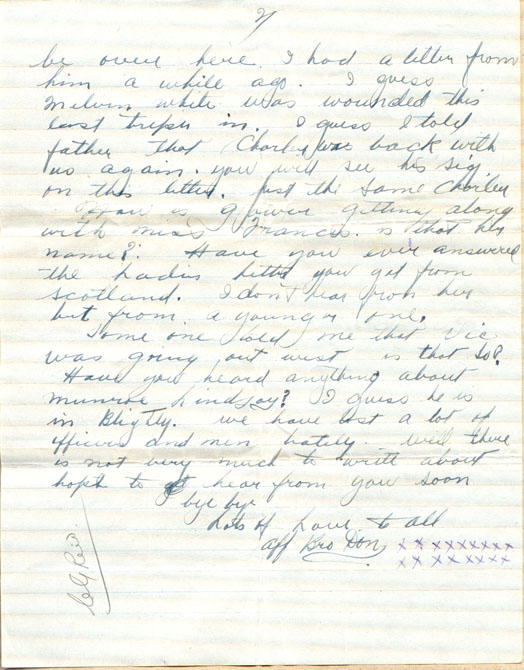 2/
be over here. I had a letter from
him a while ago. I guess
Melvin White was wounded this
last trip in. I guess I told
father that Charley was back with
us again. you will see his sig
on this letter. just the same Charley
How is getting along
with miss Francis. is that her
name? Have you ever answered
the ladies letter you got from
Scotland. I don't hear from her
but from a younger one.
Some one told me that Vic
was going out west is that so?
Have you heard anything about
Munroe Lindsay? I guess he is
in Blighty. We have lost a lot of
officers and men lately. Well there
is not very much to write about
hope to hear from you soon
bye bye
Lots of Love to all
aff Bro Don xxxxxxxxx
xxxxxxxxx
Reid.